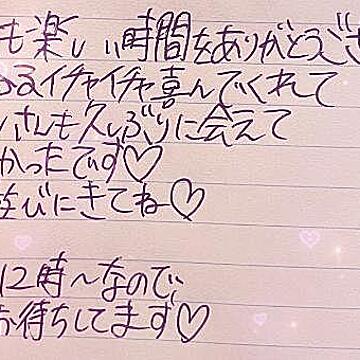 も楽しい時間をありがとうござ
るイチャイチャ喜んでくれて
さんも久しぶりに会えて
かったです♡
遊びにきてね♡
12時〜なので
お待ちしてます♡